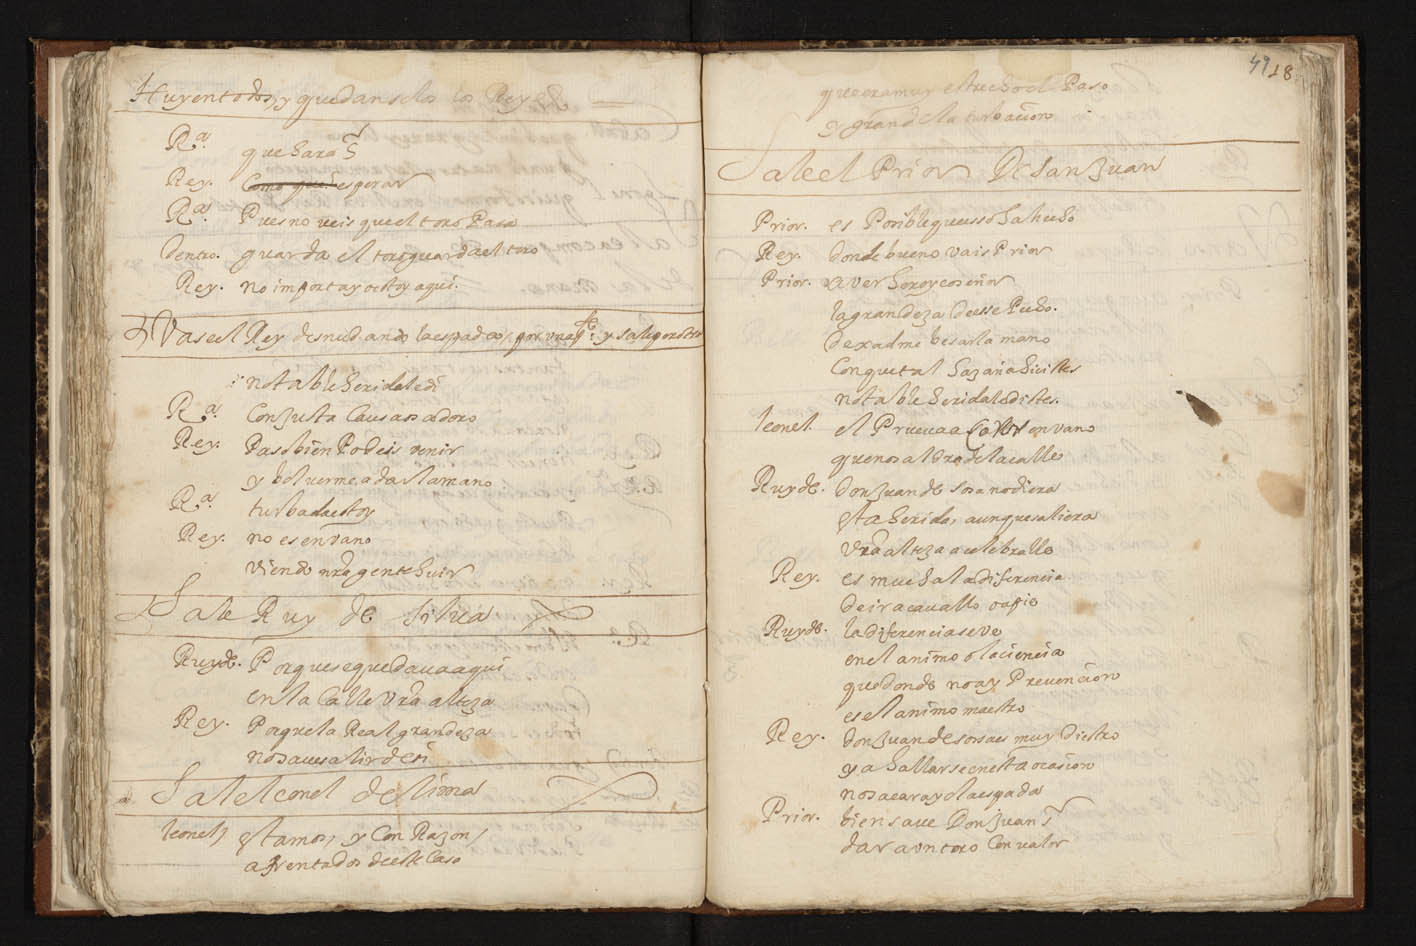 Huyen todos, y quedan solos los Reyes
Ra. que hara S
Rey. Como que esperar
Ra. Pues no veis que el toro Pasa
dentro. guarda el toro guarda el toro
Rey. no importa yo estoy aqui.
Vase el Rey desnudando la espada por una pte. y sale por otra
notable herida le di
Ra. Con Justa Causa os adoro
Rey. Paso bien Podeis venir
y bolverme a dar la mano
Ra. turbada estoy
Rey. no es en vano
viendo nra gente huir
Sale Ruy de silva
Ruy de. Porque se quedava aqui
en la Calle Vra alteza
Rey. Porque la Real grandeza
no save salir de si
Sale leonel de lima
leonel, estamos, y Con Razon,
afrentados de este Caso
49 18
que era muy estrecho el Paso
y grande la turbacion
Sale el Prior De san Juan
Prior. es Posible que esso ha hecho
Rey. donde bueno vais Prior
Prior. a ver hoy señor
la grandeza de esse Pecho.
Dexadme besar la mano
Con que tal hazaña hicistes
notable herida le distes.
leonel. el Prueva a en vano
que no saldra de la calle
Ruy de. don Juan de sosa no diera
esta herida, aunque saliera
Vra alteza a celebralle
Rey. es mucha la diferencia
de ir a cavallo o a pie
Ruy de. la diferencia se ve
en el animo o la ciencia
que donde no ay Prevencion
es el animo maestro
Rey. don Juan de sosa es muy Diestro
y a hallarse en esta ocasion
no sacara yo la espada
Prior. bien save Don Juan S
dar a un toro Con valor